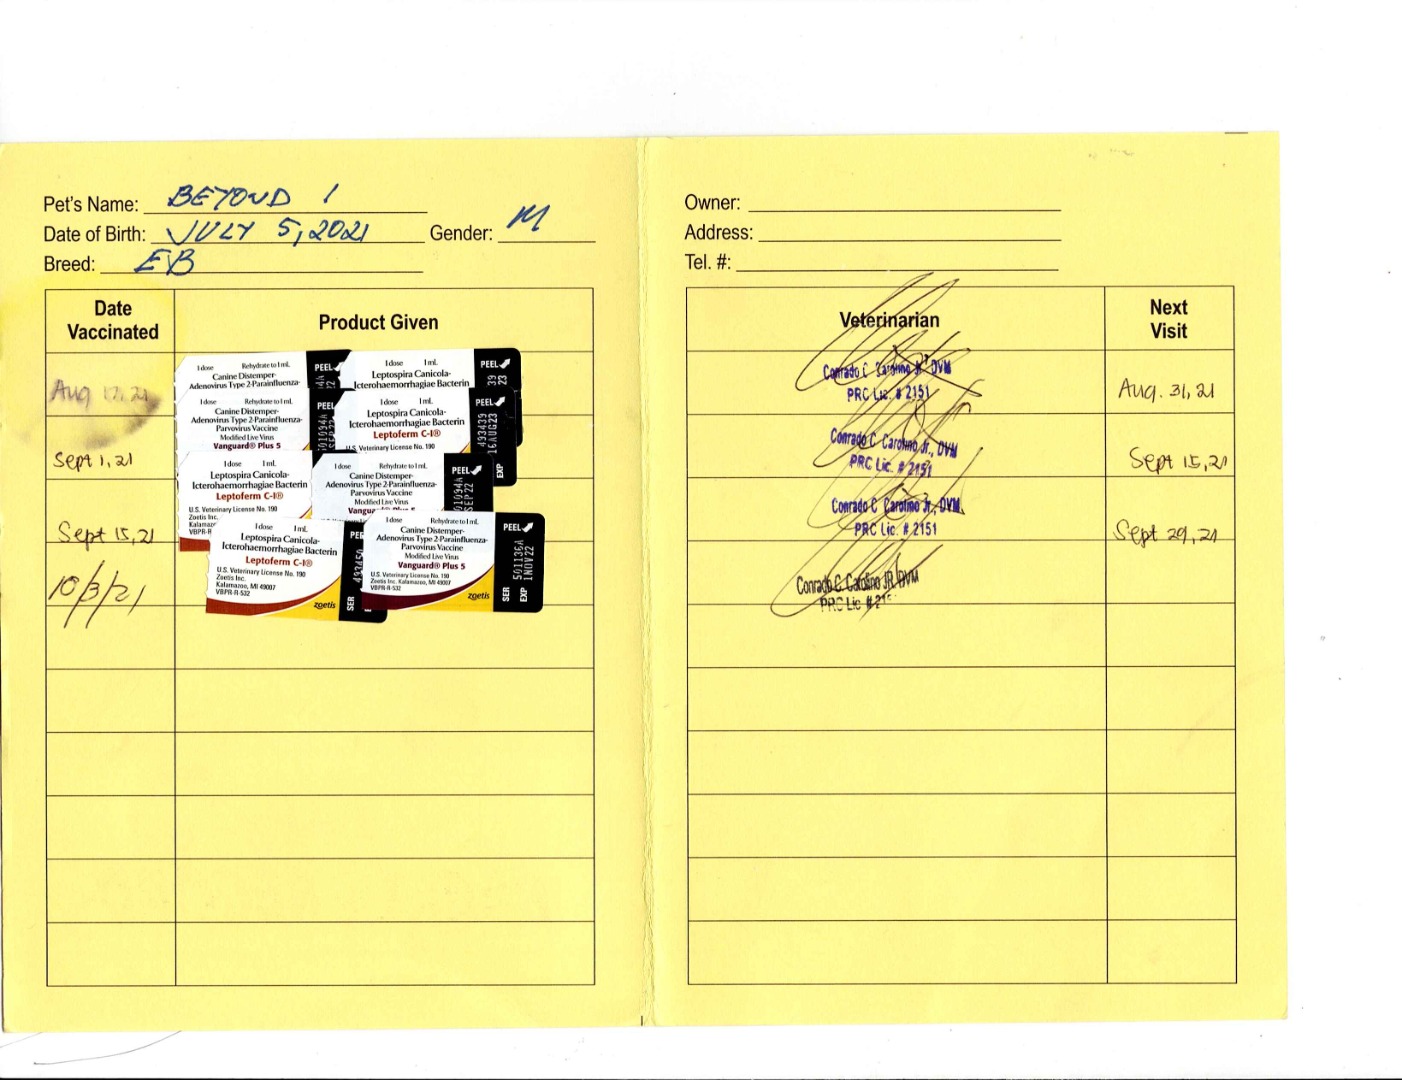 Pet's Name: BEYOND 1
Date of Birth: JULY 5, 2021 Gender: M
Breed: EB
Date Vaccinated
Product Given
Aug 21
Sept 1, 21
Sept 15, 21
10/3/21
1 dose Rehydrate to 1 mL
Canine Distemper-
Adenovirus Type 2-Parainfluenza-
PEEL
1 dose 1 mL
Leptospira Canicola-
Icterohaemorrhagiae Bacterin
PEEL
1 dose Rehydrate to 1 mL
Canine Distemper-
Adenovirus Type 2-Parainfluenza-
Parvovirus Vaccine
Modified Live Virus
Vanguard® Plus 5
PEEL
1 dose 1 mL
Leptospira Canicola-
Icterohaemorrhagiae Bacterin
Leptoferm C-I®
U.S. Veterinary License No. 190
493439
16AUG23
EXP
1 dose 1 mL
Leptospira Canicola-
Icterohaemorrhagiae Bacterin
Leptoferm C-I®
U.S. Veterinary License No. 190
Zoetis Inc.
1 dose Rehydrate to 1 mL
Canine Distemper-
Adenovirus Type 2-Parainfluenza-
Parvovirus Vaccine
Modified Live Virus
PEEL
SEP22
1 dose 1 mL
Leptospira Canicola-
Icterohaemorrhagiae Bacterin
Leptoferm C-I®
U.S. Veterinary License No. 190
Zoetis Inc.
Kalamazoo, MI 49007
VBPR-R-532
zoetis
SER
1 dose Rehydrate to 1 mL
Canine Distemper-
Adenovirus Type 2-Parainfluenza-
Parvovirus Vaccine
Modified Live Virus
Vanguard® Plus 5
U.S. Veterinary License No. 190
Zoetis Inc.
Kalamazoo, MI 49007
VBPR-R-532
zoetis
PEEL
SER 501136A
EXP 1NOV22
Owner:
Address:
Tel. #:
Veterinarian
Next Visit
Conrado C. Carolino Jr., DVM
PRC Lic. # 2151
Aug. 31, 21
Conrado C. Carolino Jr., DVM
PRC Lic. # 2151
Sept 15, 21
Conrado C. Carolino Jr., DVM
PRC Lic. # 2151
Sept 29, 21
Conrado C. Carolino JR. DVM
PRC Lic #